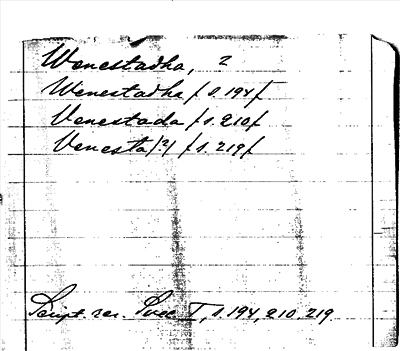 Wenestadha, 2
Wenestadha /s. 194/
Venestada /s. 210/
Venesta/?/ /s. 219/
Script. rer. Svec. I, s. 194, 210, 219.